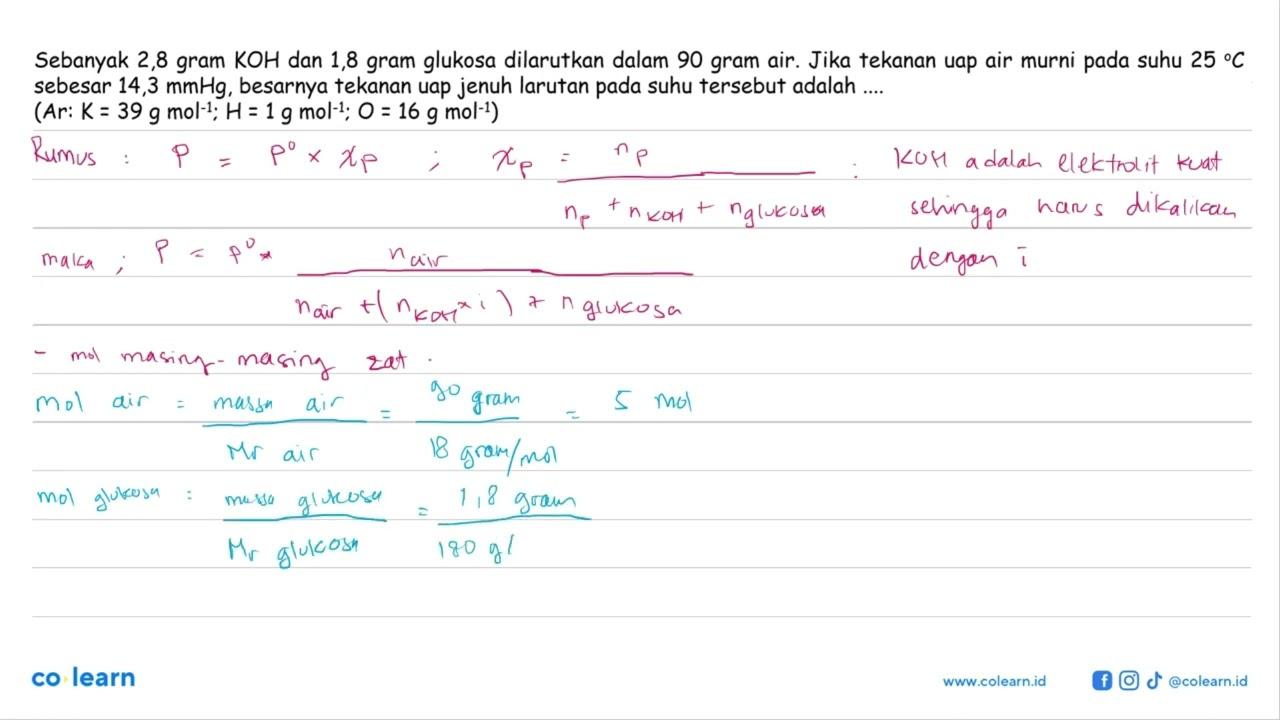 Sebanyak 2,8 gram KOH dan 1,8 gram glukosa dilarutkan dalam 90 gram air. Jika tekanan uap air murni pada suhu 25 °C
sebesar 14,3 mmHg, besarnya tekanan uap jenuh larutan pada suhu tersebut adalah ....
(Ar: K = 39 g mol⁻¹; H = 1 g mol⁻¹; O = 16 g mol⁻¹)
Rumus : P = P° × xp ; xp = np / (np + nKOH + nglukosa) : KOH adalah elektrolit kuat
sehingga harus dikalikan
dengan i
maka ; P = P° × nair / (nair + (nKOH × i) + nglukosa)
- mol masing-masing zat .
mol air = massa air / Mr air = 90 gram / 18 gram/mol = 5 mol
mol glukosa : massa glukosa / Mr glukosa = 1,8 gram / 180 g/
co learn
www.colearn.id
@colearn.id